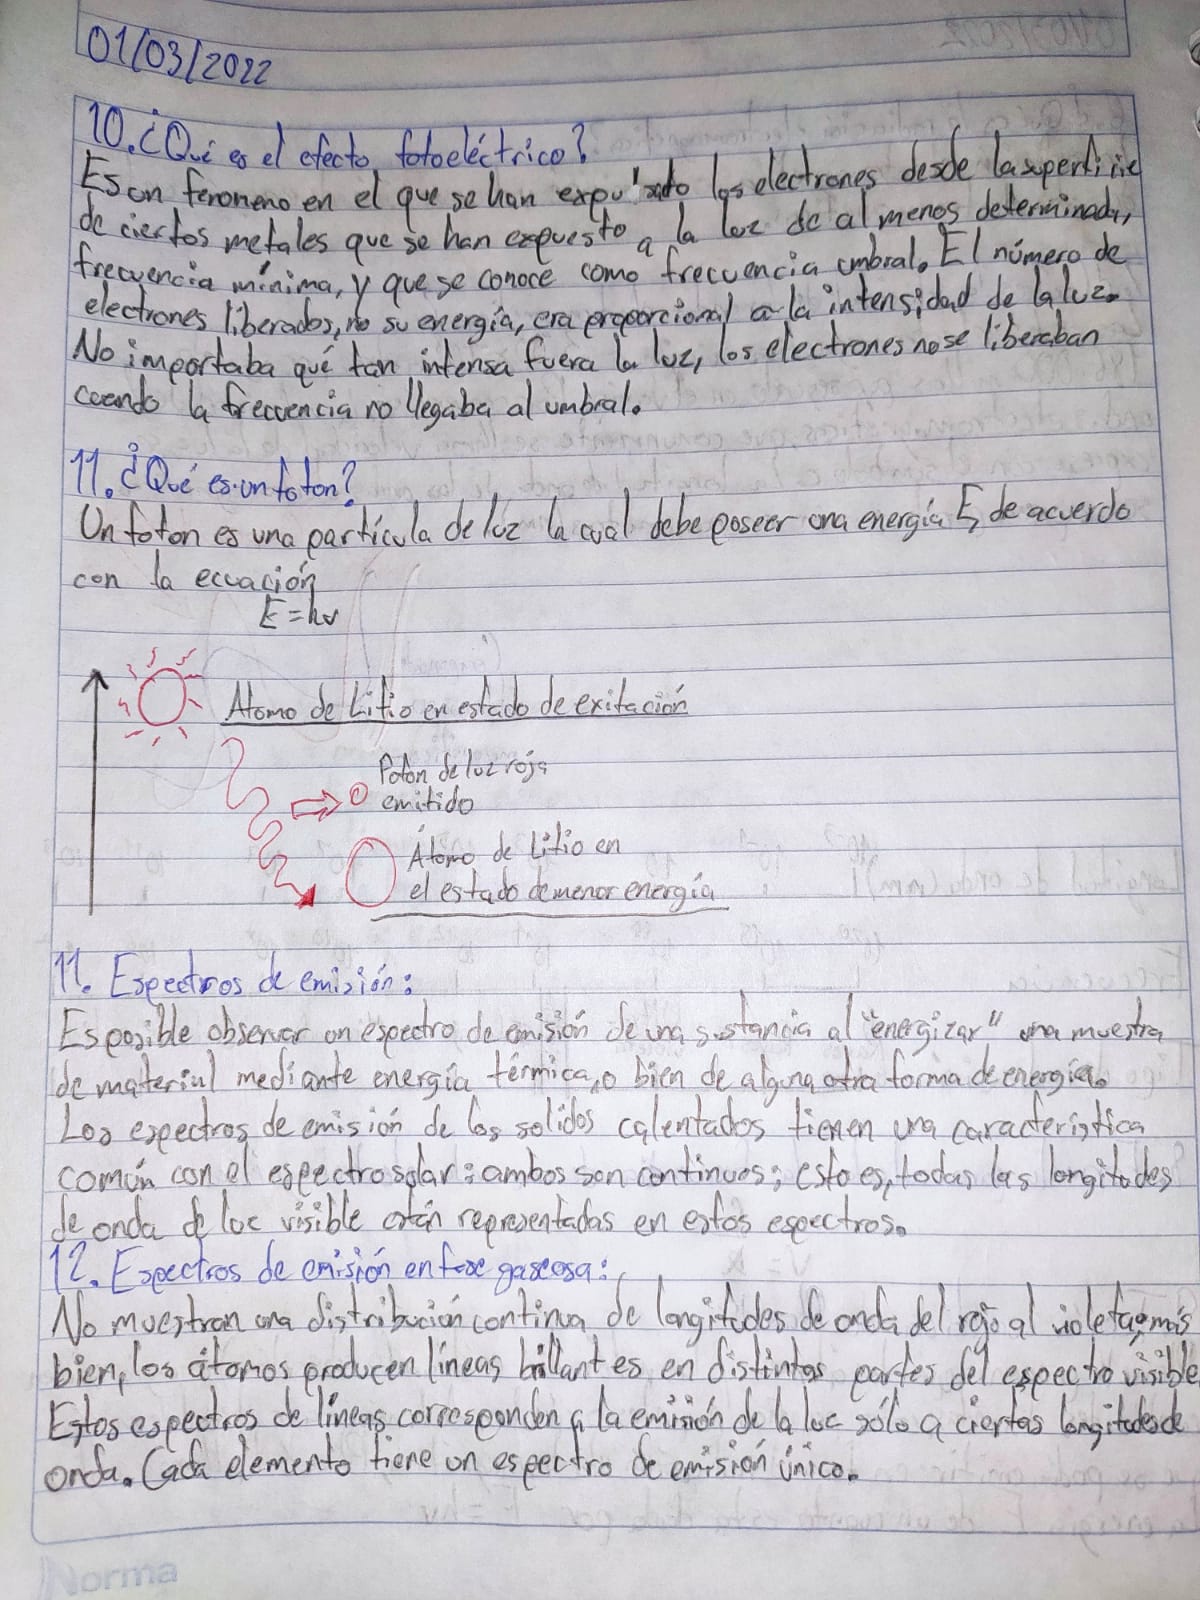 01/03/2022
10. ¿Qué es el efecto fotoeléctrico?
Es un fenomeno en el que se han expulsado los electrones desde la superficie
de ciertos metales que se han expuesto a la luz de al menos determinada,
frecuencia mínima, y que se conoce como frecuencia umbral. El número de
electrones liberados, no su energía, era proporcional a la intensidad de la luz.
No importaba qué tan intensa fuera la luz, los electrones no se liberaban
cuando la frecuencia no llegaba al umbral.
11. ¿Qué es un foton?
Un foton es una partícula de luz la cual debe poseer una energía E, de acuerdo
con la ecuación
E = hv
Atomo de Litio en estado de exitación
Foton de luz roja
emitido
Átomo de Litio en
el estado de menor energía
11. Espectros de emisión:
Es posible observar un espectro de emisión de una sustancia al "energizar" una muestra
de material mediante energía térmica, o bien de alguna otra forma de energía.
Los espectros de emisión de los solidos calentados tienen una característica
común con el espectro solar: ambos son continuos; esto es, todas las longitudes
de onda de luz visible están representadas en estos espectros.
12. Espectros de emisión en fase gaseosa:
No muestran una distribución continua de longitudes de onda del rojo al violeta, más
bien, los átomos producen líneas brillantes en distintas partes del espectro visible.
Estos espectros de líneas corresponden a la emisión de la luz sólo a ciertas longitudes de
onda. Cada elemento tiene un espectro de emisión único.
Norma